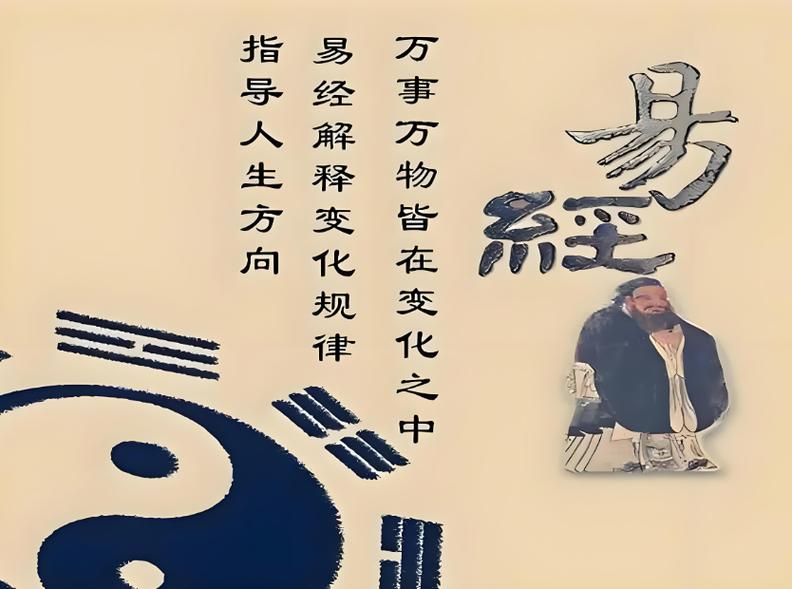 易經
万事万物皆在变化之中
易经解释变化规律
指导人生方向